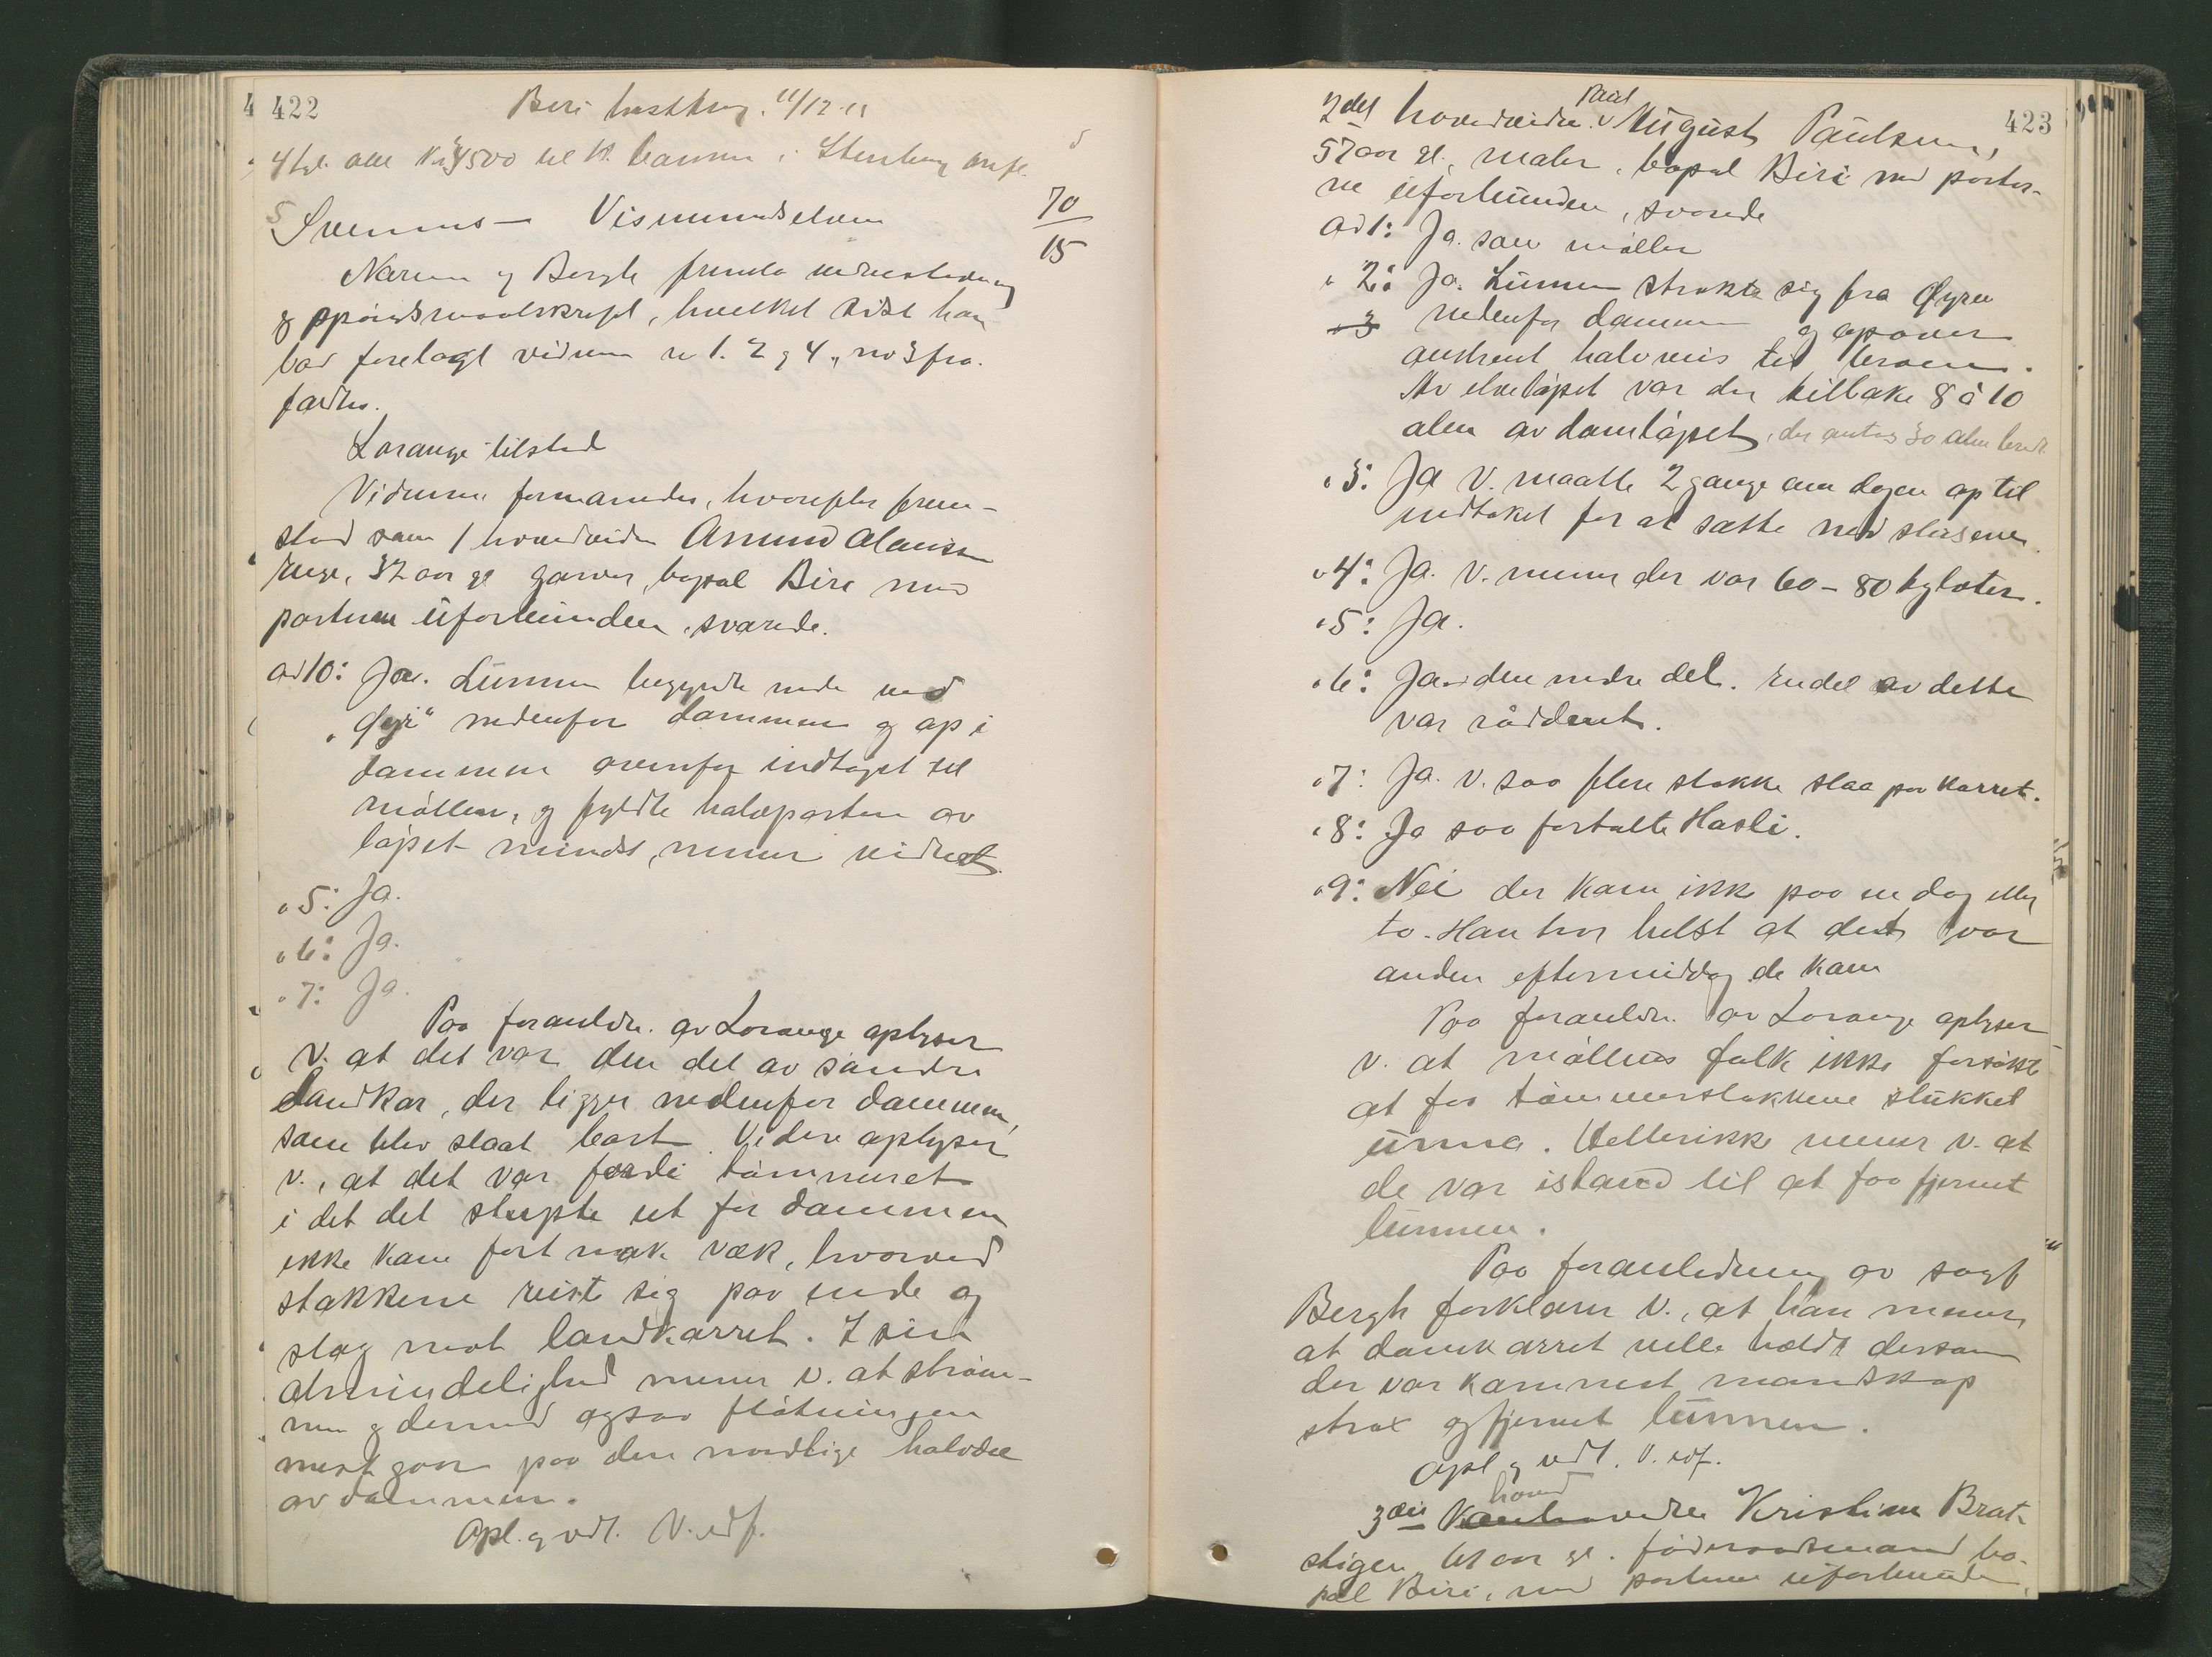 422
Beri 11/12 11
4 tyl. alle Kr. 4500 til
5
Svennes - Vismundselven
70
15
og Bergh fremla vidnestevning
og spörsmaalskrift, hvilket sidst han
bad forelagt vidnene nr 1. 2 og 4, no 3 fra-
faldtes.
Lorange tilstede
Vidnene formanedes, hvorefter frem-
stod som 1 hovedvidne Amund Olausen
37 aar gl garver, bopæl Biri med
parterne uforbunden, svarede.
ad 10: Ja. Lunnen begyndte nede ved
"Öyi" nedenfor dammen og op i
dammen ovenfor indtaget til
möllen, og fyldte halvparten av
löpet mindst, mener vidnet.
" 5: Ja.
" 6: Ja.
" 7: Ja.
Paa foranledn. av Lorange oplyser
V. at det var den del av söndre
landkar, der ligger nedenfor dammen,
som blev slaat bort. Videre oplyser
v., at det var fordi tömmeret
i det det slupte ut for dammen
ikke kom fort nok væk, hvorved
stokkene reiste sig paa ende og
slog mot landkarret. I sin
almindelighed mener v. at ström-
men og dermed ogsaa flötningen
mest gaar paa den nordlige halvdel
av dammen.
Opl. og vedt. V. edf.
423
2det hovedvidne Paul August Paulsen,
57 aar gl., maler, bopæl Biri med parter-
ne uforbunden, svarede
ad 1: Ja. saa möller
" 2: Ja. Lunnen strakte sig fra Öyren
" 3 nedenfor dammen og opover
omtrent halvveis til broen.
Av elvelöpet var der tilbake 8 à 10
alen av damlöpet, der antas 30 alen bredt
" 3: Ja V. maatte 2 gange om dagen op til
indtaket for at sætte ned slusene.
" 4: Ja. V. mener der var 60 - 80 tylvter.
" 5: Ja.
" 6: Ja den nedre del. En del av dette
var råddent.
" 7: Ja. V. saa flere stokke slaa paa karret.
" 8: Ja saa fortalte Hasli.
" 9: Nei der kom ikke paa en dag eller
to. Han tror helst at det var
anden eftermiddag de kom
Paa foranledn. av Lorange oplyser
v. at möllens folk ikke forsökte
at faa tömmerstokkene stukket
unna. Heller ikke mener v. at
de var istand til at faa fjernet
lunnen.
Paa foranledning av sagf
Bergh forklarer V., at han mener
at damkarret ville holdt dersom
der var kommet mandskap
strax og fjernet lunnen.
Opl og vedt. V. edf.
3die hovedvidne Kristian Brat-
stigen aar gl. föderaadsmand bo-
pæl Biri, med parterne uforbunden,